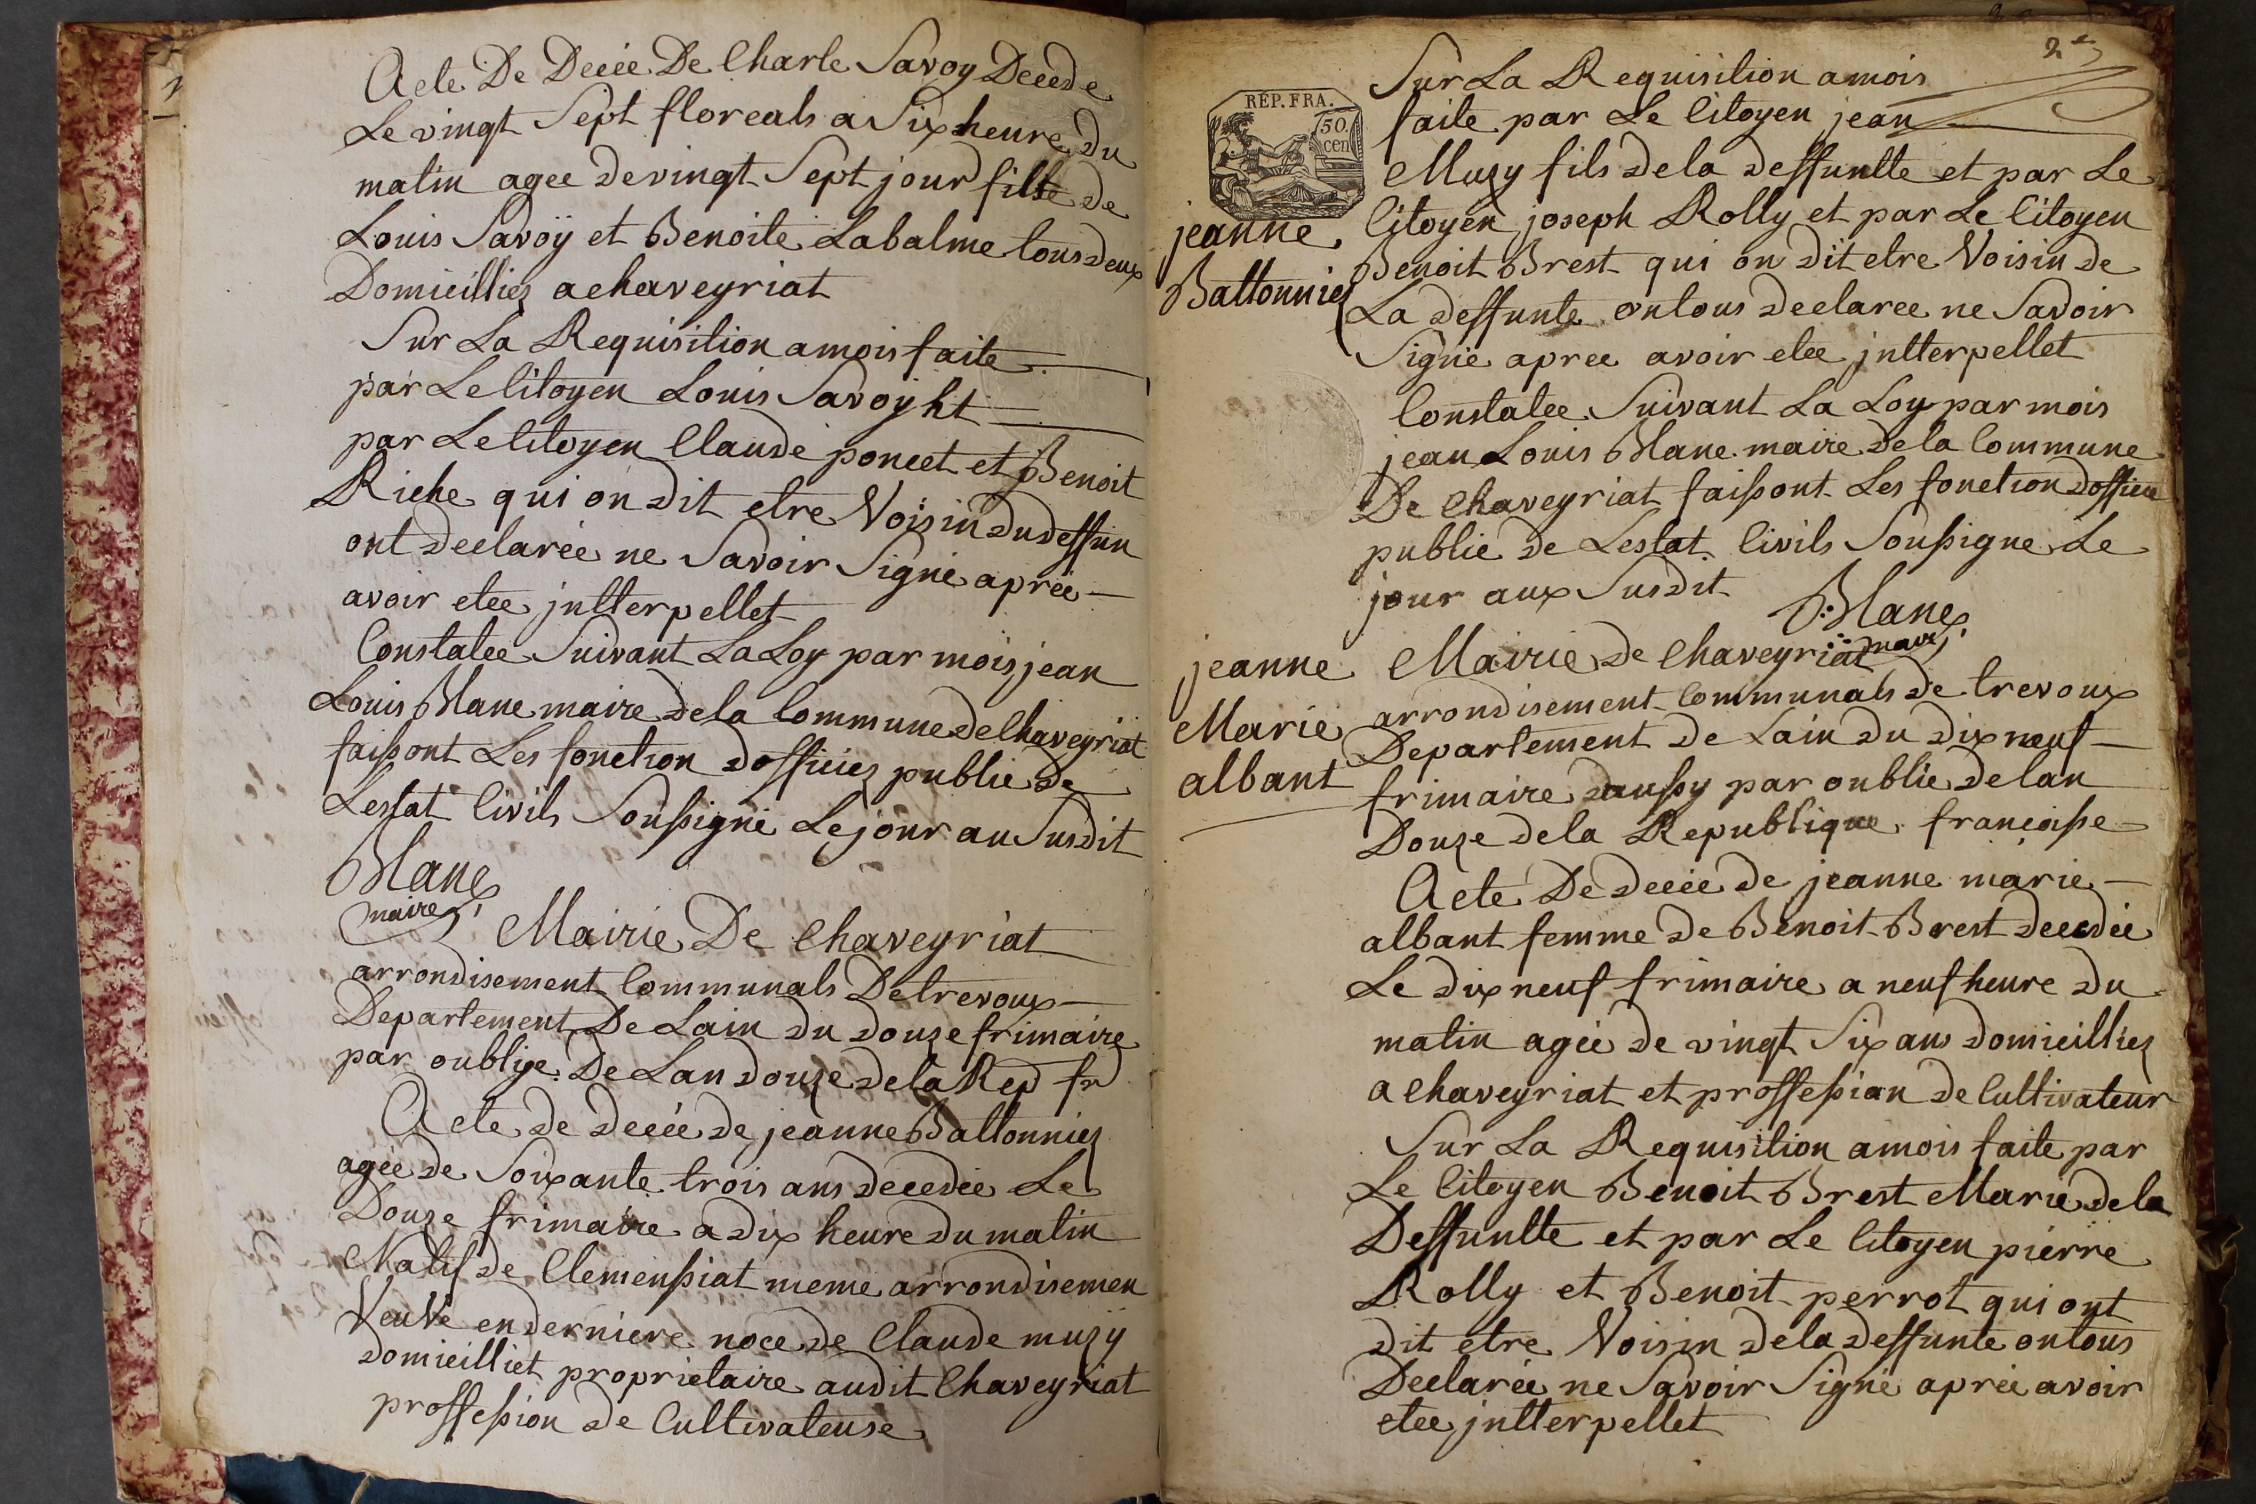 Acte De Deceè De Charle Savoy Decede
Le vingt Sept floreals a Six heure du
matin agee de vingt Sept jour fils de
Louis Savoÿ et Benoite Labalme tous deux
Domicilliez a chaveyriat
Sur La Requisition a mois faite
par Le Citoyen Louis Savoy ht
par Le Citoyen Claude poncet et Benoit
Riche qui on dit etre Voisin du deffun
ont declareé ne Savoir Signé apreé
avoir eteé jntterpellet
Constatee Suivant La Loy par mois jean
Louis Blanc maire de la Commune de Chaveyriat
faissont Les fonction dofficiez public de
Lestat Civils Soussigné Le jour au Susdit
Blanc
maire
Mairie De Chaveyriat
arrondisement Communals De trevoux
Departement De Lain du douze frimaire
par oublije De Lan douze de la Rep fr
Acte de deceé de jeanne Battonniez
ageé de Soixante trois ans decedeé Le
Douze frimaire a dix heure du matin
Natif de Clemenssiat meme arrondisemen
Veuve en derniere noce de Claude muzÿ
domicilliet proprietaire audit Chaveyriat
proffession de Cultivateuse
2e
REP. FRA.
50.
cen
jeanne
Battonniez
Sur La Requisition a mois
faite par Le Citoyen jean
Muzy fils de la deffuntte et par Le
Citoyen joseph Rolly et par Le Citoyen
Benoit Brest qui on dit etre Voisin de
La deffunte on tous declaree ne Savoir
Signé apree avoir etee jntterpellet
Constatee Suivant La Loy par mois
jean Louis Blanc maire de la Commune
De Chaveyriat faissont Les fonction dofficie
public de Lestat Civils Soussigne Le
jour aux Susdit
Blanc
maire
jeanne
Marie
albant
Mairie de Chaveyriat
arrondisement Communals de trevoux
Departement de Lain du dix neuf
frimaire daussy par oublie de lan
Douze de la Republique francoisse
Acte De deceé de jeanne marie
albant femme de Benoit Brest decedeé
Le dix neuf frimaire a neuf heure du
matin ageé de vingt Six ans domicilliez
a Chaveyriat et proffessian de Cultivateur
Sur La Requisition a mois faite par
Le Citoyen Benoit Brest Marie de la
Deffuntte et par Le Citoyen pierre
Rolly et Benoit perrot qui ont
dit etre Voisin de la deffunte on tous
Declareé ne Savoir Signé apreé avoir
etee jntterpellet